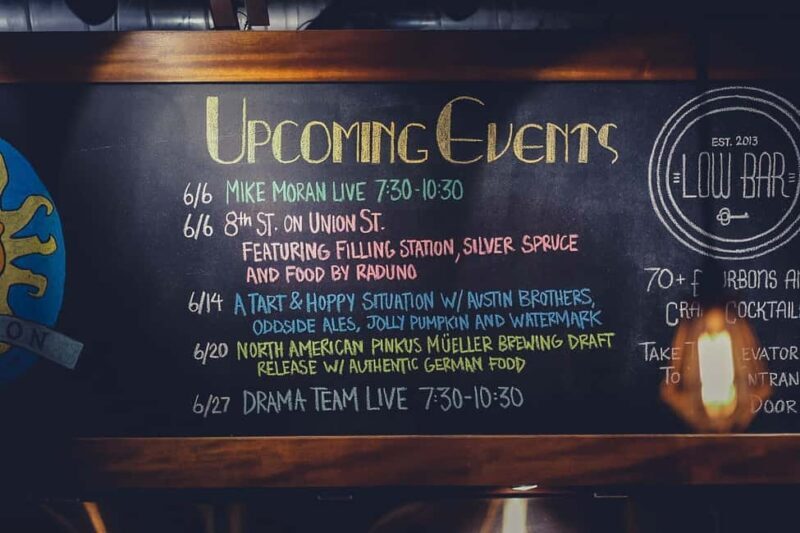 UPCOMING EVENTS
6/6 MIKE MORAN LIVE 7:30-10:30
6/6 8th ST. ON UNION ST.
FEATURING FILLING STATION, SILVER SPRUCE
AND FOOD BY RADUNO
6/14 A TART & HOPPY SITUATION W/ AUSTIN BROTHERS,
ODDSIDE ALES, JOLLY PUMPKIN AND WATERMARK
6/20 NORTH AMERICAN PINKUS MÜELLER BREWING DRAFT
RELEASE W/ AUTHENTIC GERMAN FOOD
6/27 DRAMA TEAM LIVE 7:30-10:30
EST. 2013
LOW BAR
70+
TAKE
TO
DOOR